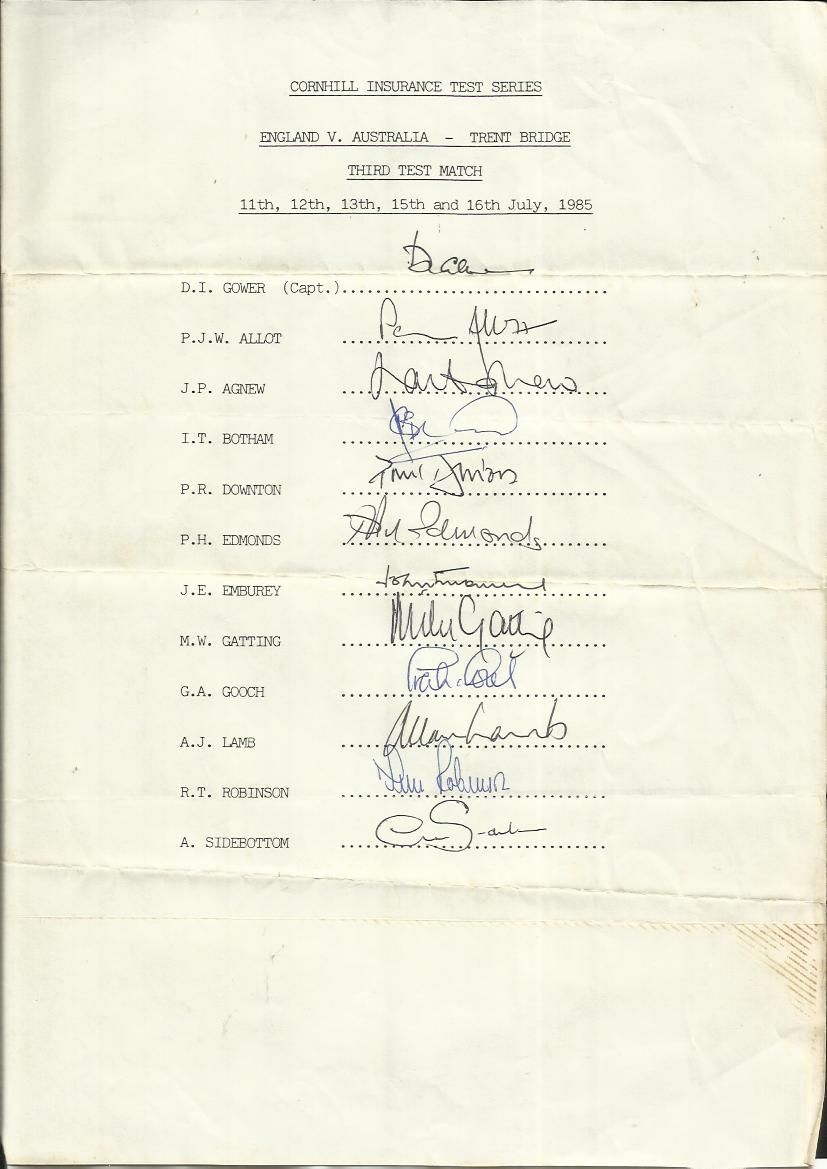 CORNHILL INSURANCE TEST SERIES
ENGLAND V. AUSTRALIA - TRENT BRIDGE
THIRD TEST MATCH
11th, 12th, 13th, 15th and 16th July, 1985
D.I. GOWER (Capt.)................................
P.J.W. ALLOT ................................
J.P. AGNEW ................................
I.T. BOTHAM ................................
P.R. DOWNTON ................................
P.H. EDMONDS Phil Edmonds
J.E. EMBUREY ................................
M.W. GATTING Mike Gatting
G.A. GOOCH ................................
A.J. LAMB Allan Lamb
R.T. ROBINSON Tim Robinson
A. SIDEBOTTOM ................................